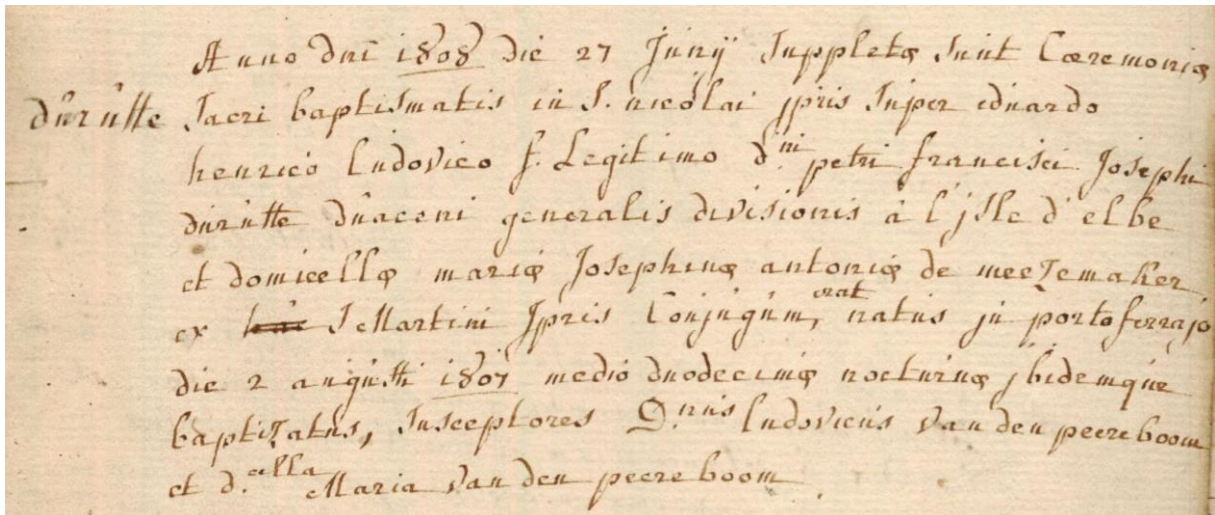 Anno dni 1808 die 27 Junÿ Suppletæ Sunt Cæremoniæ
dúrútte Sacri baptismatis in S. nicólai jpris Super eduardo
henrico ludovico f. Legitimo d.ni petri francisci Josephi
dúrútte dúaceni generalis divisionis à l'jsle d'elbe
et domicellæ mariæ Josephinæ antoniæ de meezemaker
ex hâc S Martini Jpris Conjúgúm, erat natus jn portoferrajo
die 2 augústi 1807 medio duodecimæ nocturnæ jbidemqúe
baptizatús, Susceptores D.nús ludovicús Van den peereboom
et d.ella Maria Van den peereboom